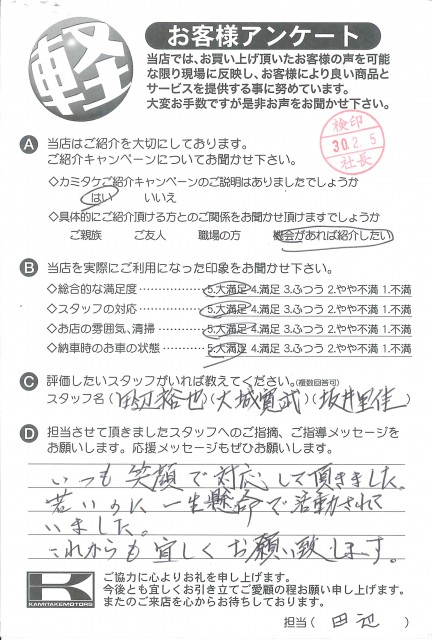 軽
お客様アンケート
当店では、お買い上げ頂いたお客様の声を可能
な限り現場に反映し、お客様により良い商品と
サービスを提供する事に努めています。
大変お手数ですが是非お声をお聞かせ下さい。
検印
30.2.5
社長
A 当店はご紹介を大切にしております。
ご紹介キャンペーンについてお聞かせ下さい。
◇カミタケご紹介キャンペーンのご説明はありましたでしょうか
はい いいえ
◇具体的にご紹介頂ける方とのご関係をお聞かせ頂けますでしょうか
ご親族 ご友人 職場の方 機会があれば紹介したい
B 当店を実際にご利用になった印象をお聞かせ下さい。
◇総合的な満足度……………5.大満足 4.満足 3.ふつう 2.やや不満 1.不満
◇スタッフの対応……………5.大満足 4.満足 3.ふつう 2.やや不満 1.不満
◇お店の雰囲気、清掃…………5.大満足 4.満足 3.ふつう 2.やや不満 1.不満
◇納車時のお車の状態…………5.大満足 4.満足 3.ふつう 2.やや不満 1.不満
C 評価したいスタッフがいれば教えてください。(複数回答可)
スタッフ名(田辺裕也)(大城寛武)(坂井里佳)
D 担当させて頂きましたスタッフへのご指摘、ご指導メッセージを
お願いします。応援メッセージもぜひお願いします。
いつも笑顔で対応して頂きました。
若いのに一生懸命で活動されて
いました。
これからも宜しくお願い致します。
K
KAMITAKEMOTORS
ご協力に心よりお礼を申し上げます。
今後とも宜しくお引き立てご愛顧の程お願い申し上げます。
またのご来店を心からお待ちしております。
担当( 田辺 )